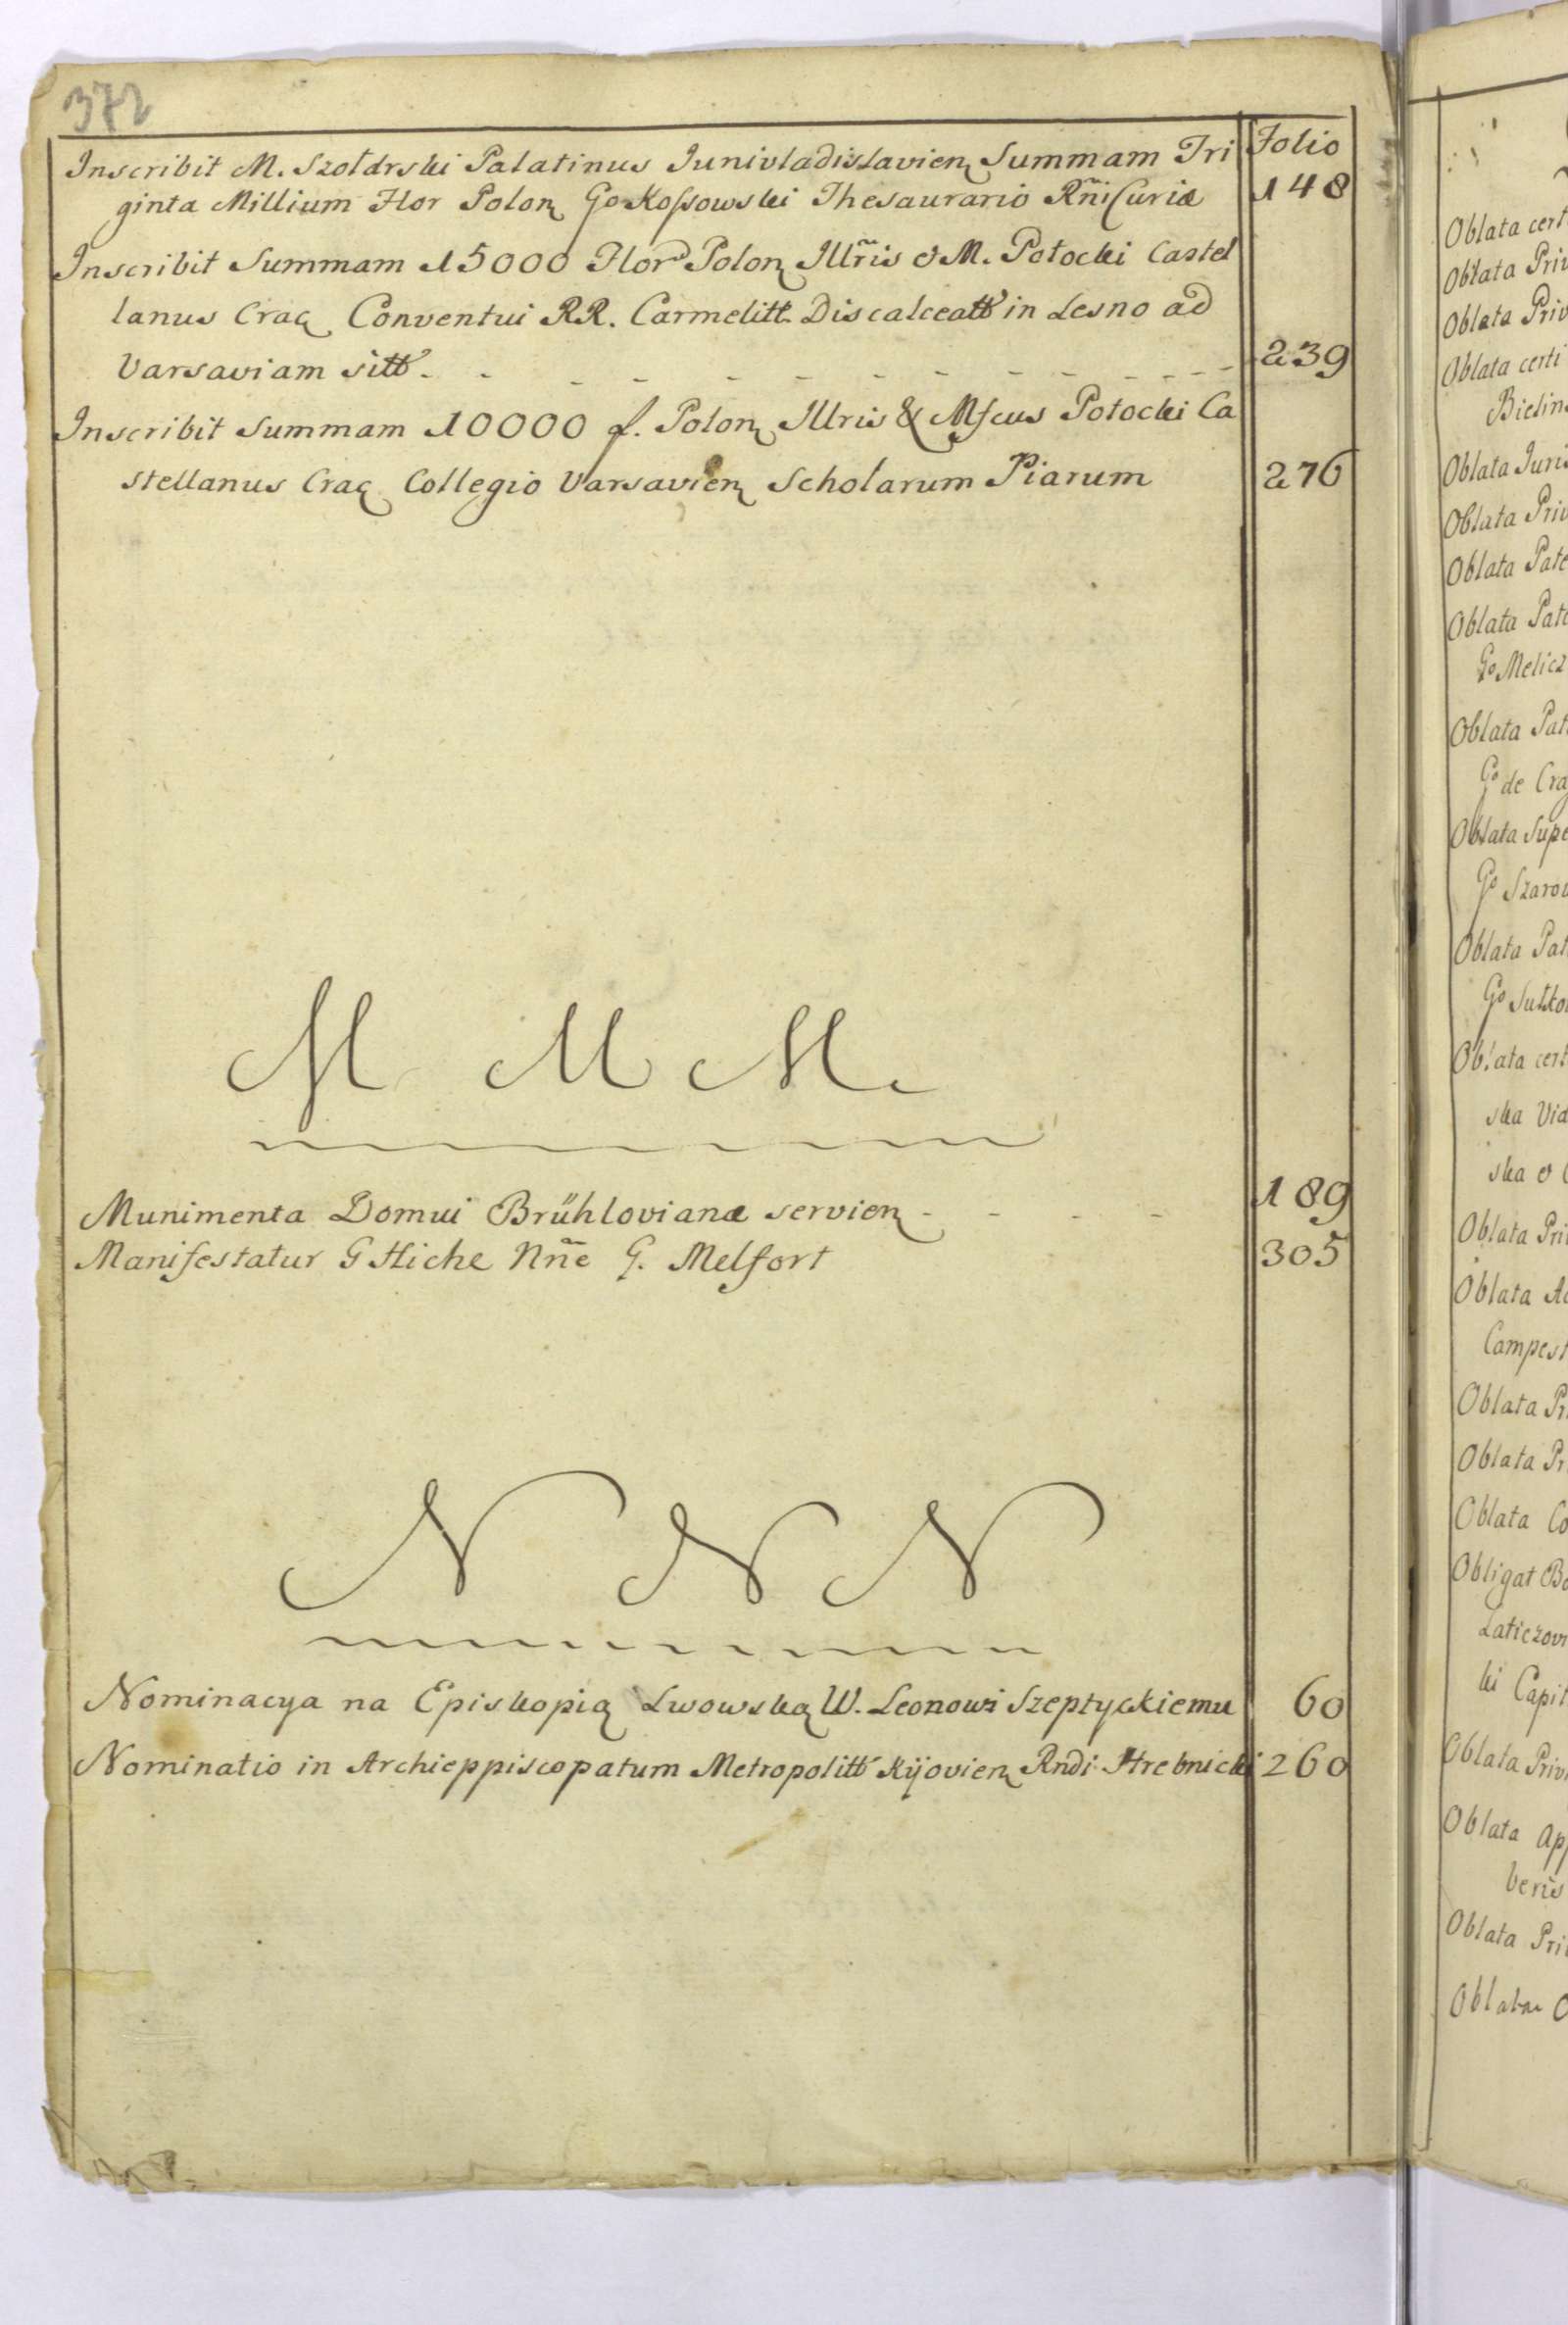 372
Folio
Inscribit M. Szołdrski Palatinus Junivladislavien Summam Tri
ginta Millium Flor Polon Go Kossowski Thesaurario Rñi Curiæ 148
Inscribit Summam 15000 Flor Polon Illris & M. Potocki Castel
lanus Crac Conventui RR. Carmelitt Discalceatt in Lesno ad
Varsaviam sitt - - - - - - - - - - - - 239
Inscribit Summam 10000 f. Polon Illris & Mfcus Potocki Ca
stellanus Crac Collegio Varsavien Scholarum Piarum 276
M M M
Munimenta Domui Brühlovianæ servien - - - - 189
Manifestatur G Hiche Nñe G. Melfort 305
N N N
Nominacya na Episkopią Lwowską W. Leonowi Szeptyckiemu 60
Nominatio in Archieppiscopatum Metropolitt Kijovien Rndi Hrebnicki 260
Oblata cert
Oblata Priv
Oblata Priv
Oblata certi
Bielin
Oblata Juris
Oblata Priv
Oblata Pate
Oblata Pate
Go Melicz
Oblata Pat
Go de Cra
Oblata Supe
Go Szarow
Oblata Pat
Go Sułko
Oblata cert
ska Vid
ska &
Oblata Pri
Oblata
Campest
Oblata Pr
Oblata Pr
Oblata Co
Obligat Bo
Laticzov
ki Capit
Oblata Priv
Oblata App
beris
Oblata Pri
Oblata